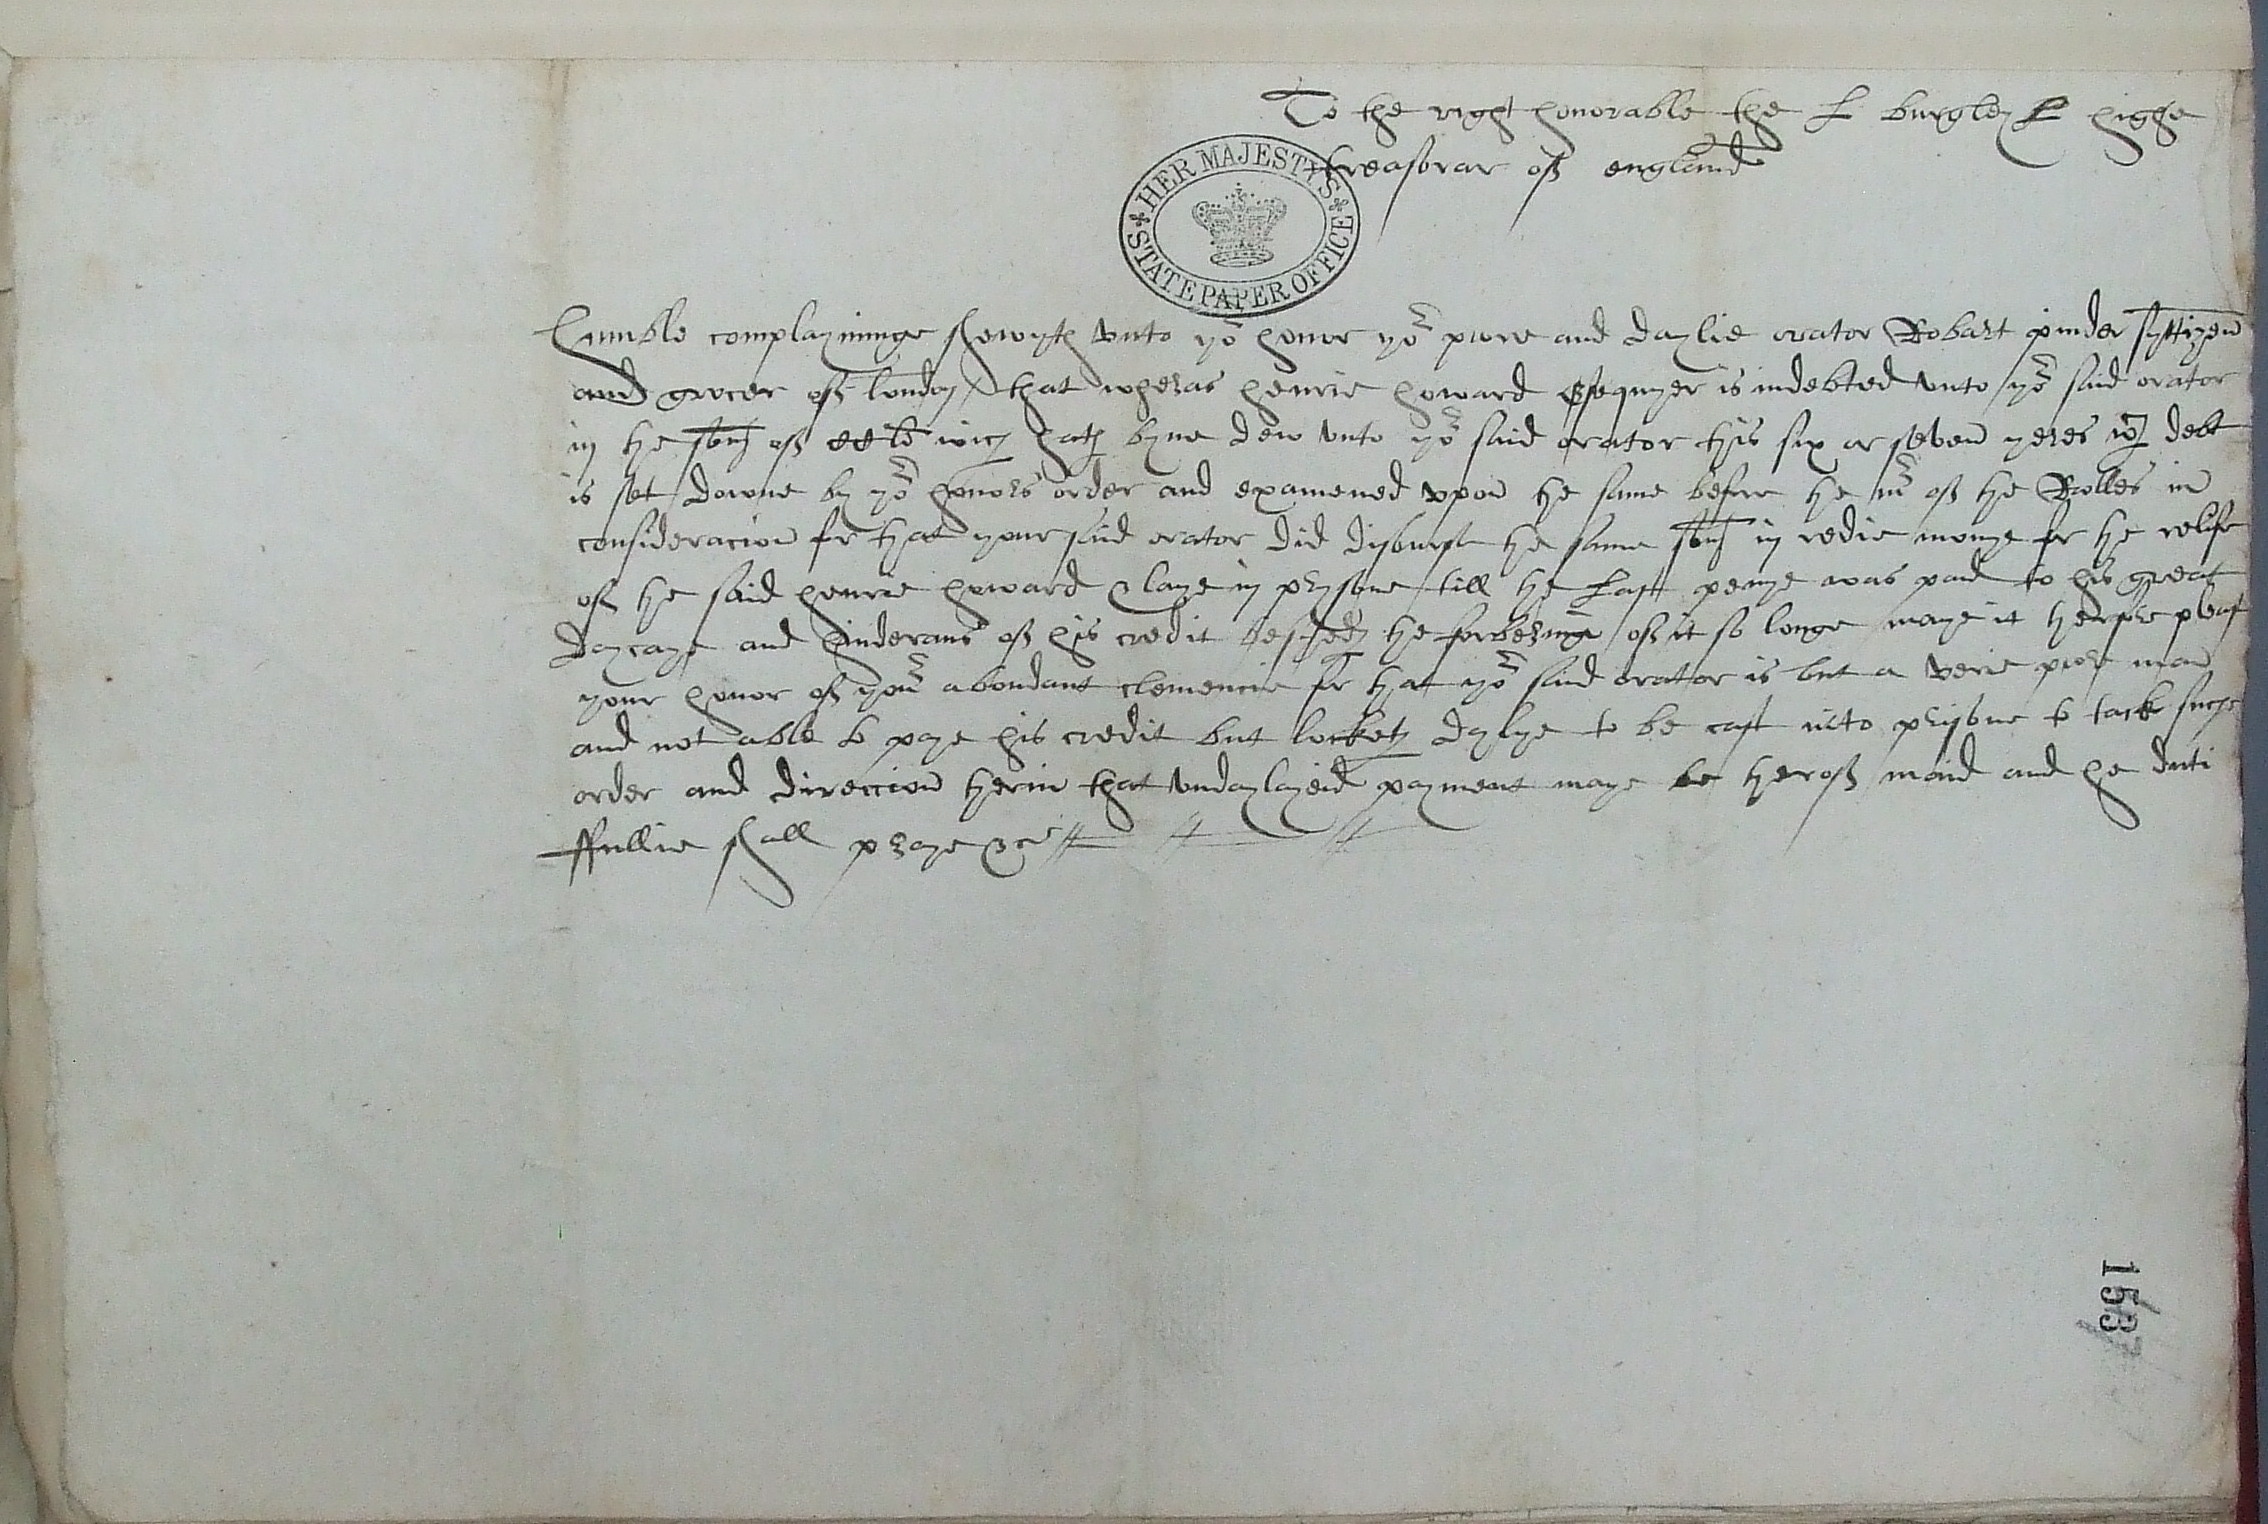 To the right honorable the L burgley L highe
treasorar off england
HER MAJESTY'S STATE PAPER OFFICE
humble complayninge shewyth vnto yor honor yor pwre and daylie orator Robart pinder syttizen
and grocer off london that wheras henrie howard Esequyer is indebted vnto yor said orator
in the som off wich hath byne dew vnto yor said orator this six or seven yeres wch debt
is set downe by yor honors order and examened vpon the same before the mr off the Rolles in
consideracion for that your said orator did disburse the same som in redie monye for the relife
off the said henrie howard & laye in prysone till the Last penye was paid to his great
daycaye and hinderans off his credit the forberinge off it so longe maye it therfore pleas
your honor off your abondant clemencie for that yor said orator is but a verie pore man
and not able to paye his credit but locketh daylye to be cast into prisone to tack suche
order and direccion herin that vndaylayeid payment maye be theroff maid and he duti
ffullie shall praye &c
153